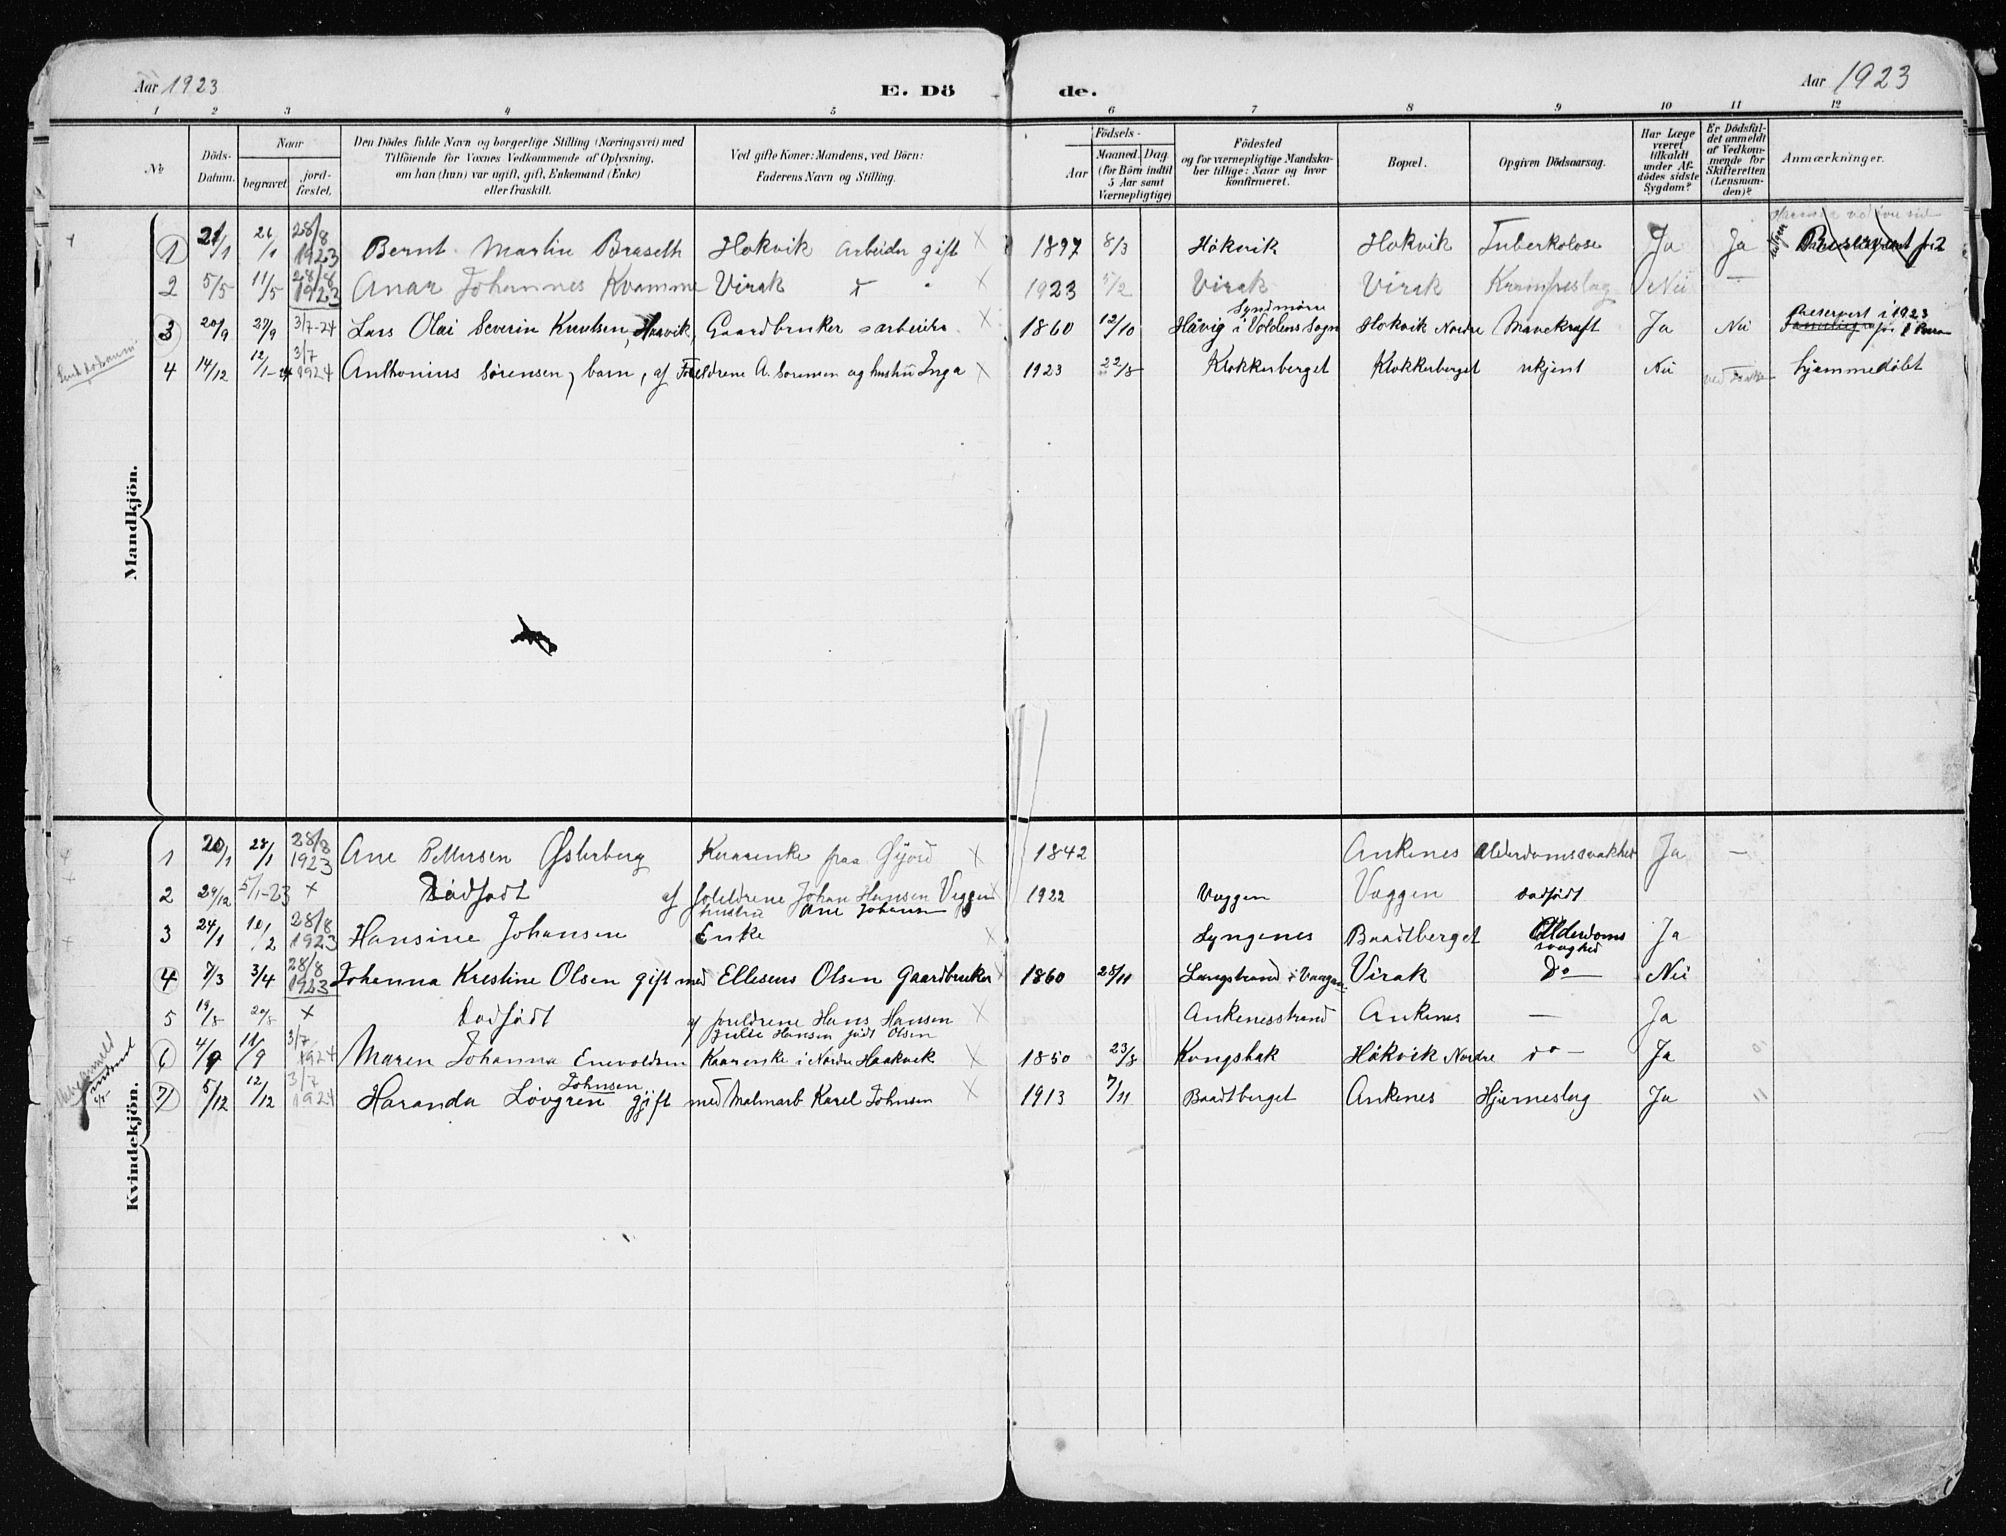 Aar 1923
E. Dö
de.
Aar 1923
1 2 3 4 5 6 7 8 9 10 11 12
No
Döds-
Datum.
Naar
begravet.
jord-
fæstet.
Den Dödes fulde Navn og borgerlige Stilling (Næringsvei) med
Tilföiende for Voxnes Vedkommende af Oplysning,
om han (hun) var ugift, gift, Enkemand (Enke)
eller fraskilt.
Ved gifte Koner: Mandens, ved Börn:
Faderens Navn og Stilling.
Födsels-
Aar
Maaned. Dag.
(for Börn indtil
5 Aar samt
Værnepligtige)
Födested
og for værnepligtige Mandska-
ber tillige: Naar og hvor
konfirmeret.
Bopæl.
Opgiven Dödsaarsag.
Har Læge
været
tilkaldt
under Af-
dödes sidste
Sygdom?
Er Dödsfal-
det anmeldt
af Vedkom-
mende for
Skifteretten
(Lensman-
den)?
Anmærkninger.
Mandkjön.
1 21/1 26/1 28/8 1923 Bernt Martin Braseth Hokvik arbeider gift × 1897 8/3 Håkvik Hokvik Tuberkolose Ja Ja
2 5/5 11/5 28/8 1923 Anar Johannes Kvamme Virak × 1923 5/2 Virak Virak Krampeslag Nei —
3 20/9 27/9 3/7-24 Lars Olai Severin Knutsen, Haavik, Gaardbruker × 1860 12/10 Håvig i Voldens Sogn Syndmöre Hokvik Nordre Mavekræft Ja Nei Preservert i 1923
4 14/12 12/1-24 3/7 1924 Anthonius Sörensen, barn, af Foreldrene A. Sörensen og hustru Inga × 1923 22/8 Klokkerberget Klokkerberget ukjent Nei hjemmedöbt
Kvindekjön.
1 20/1 28/1 28/8 1923 Ane Pettersen Østerberg Kaarenke fraa × 1842 Ankenes Alderdomssvakhed Ja —
2 29/12 5/1-23 × Dödfödt af foreldrene Johan Hansen Veggen × 1922 Væggen Væggen dødfödt
hustru Ane Johansen
3 24/1 10/2 28/8 1923 Hansine Johansen Enke × Lyngenes Baadtberget Alderdoms svaghed Ja
4 7/3 3/4 28/8 1923 Johanna Krestine Olsen gift med Elleseus Olsen Gaardbruker × 1860 28/11 Langstrand i Vaagan Virak Do — Nei
5 19/8 20/8 × Dödfödt af foreldrene Hans Hansen × Ankenesstrand Ankenes — Ja
Hansen födt Olsen
6 4/9 11/9 3/7 1924 Maren Johanna Enevoldsen Kaarenke i Nordre Haakvik × 1850 23/8 Kongsbak Håkvik Nordre do — Ja
7 5/12 12/12 3/7 1924 Haranda Lövgren Johnsen gift med Malmarb Karel Johnsen × 1913 7/11 Baadtberget Ankenes Hjerneslag Ja